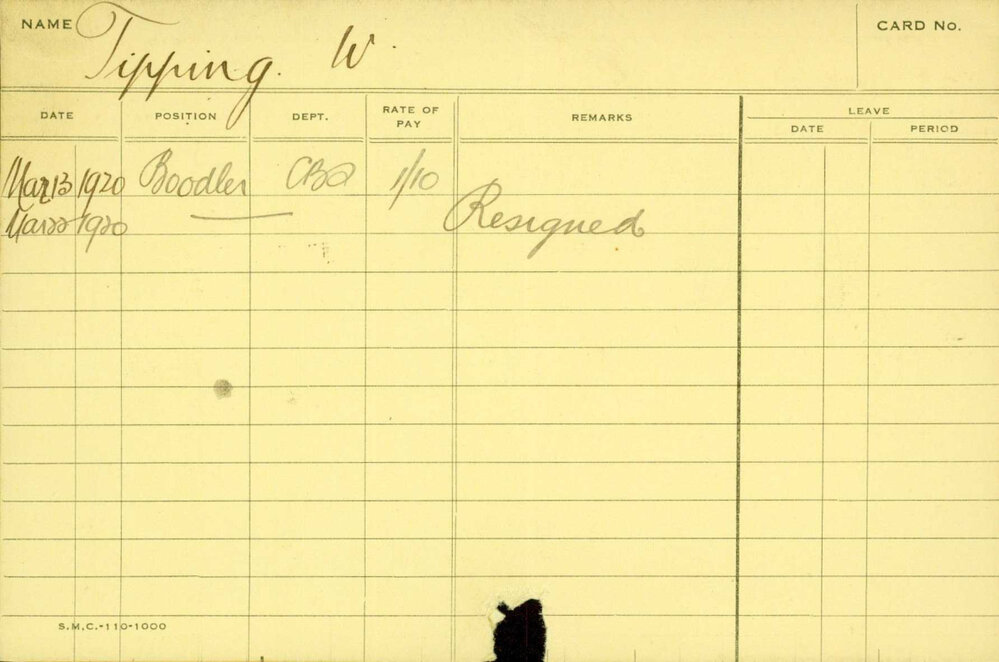 NAME Tipping. W.
CARD No.
DATE POSITION DEPT. RATE OF PAY REMARKS LEAVE
DATE PERIOD
Mar 13 1920 Boodler 1/10
Mar 22 1920 Resigned
S.M.C.-110-1000